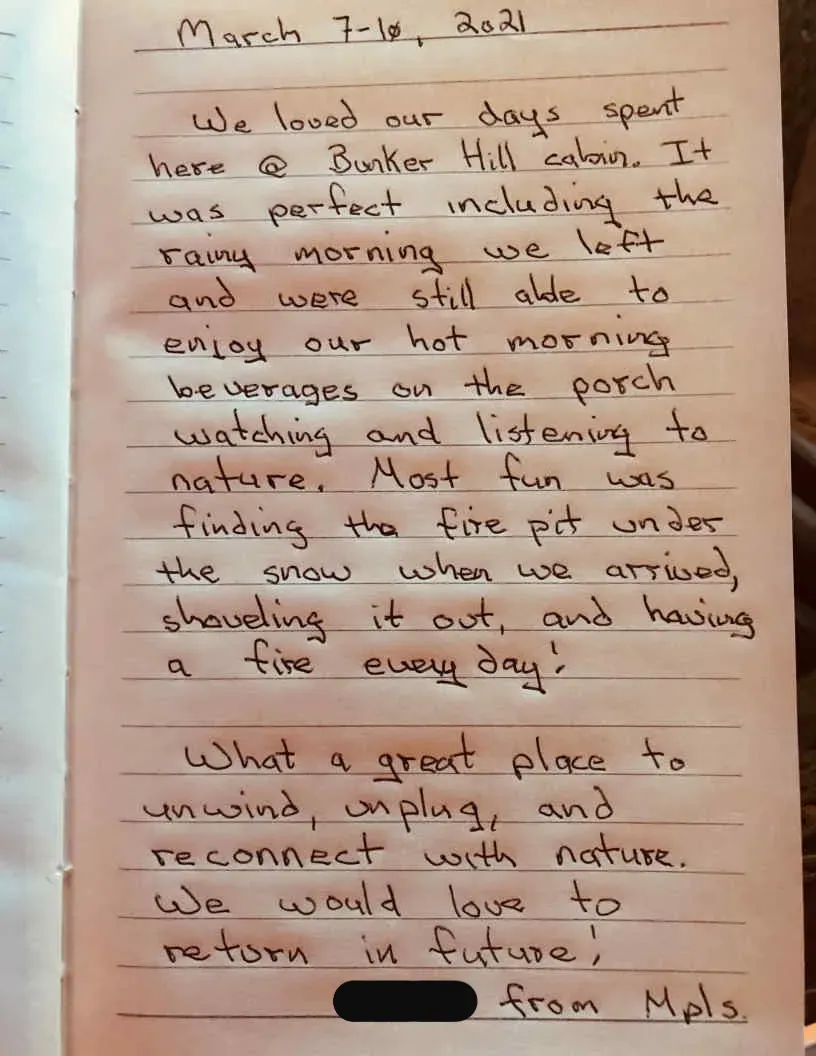 March 7-10, 2021
We loved our days spent
here @ Bunker Hill cabin. It
was perfect including the
rainy morning we left
and were still able to
enjoy our hot morning
beverages on the porch
watching and listening to
nature. Most fun was
finding the fire pit under
the snow when we arrived,
shoveling it out, and having
a fire every day!
What a great place to
unwind, unplug, and
reconnect with nature.
We would love to
return in future!
from Mpls.